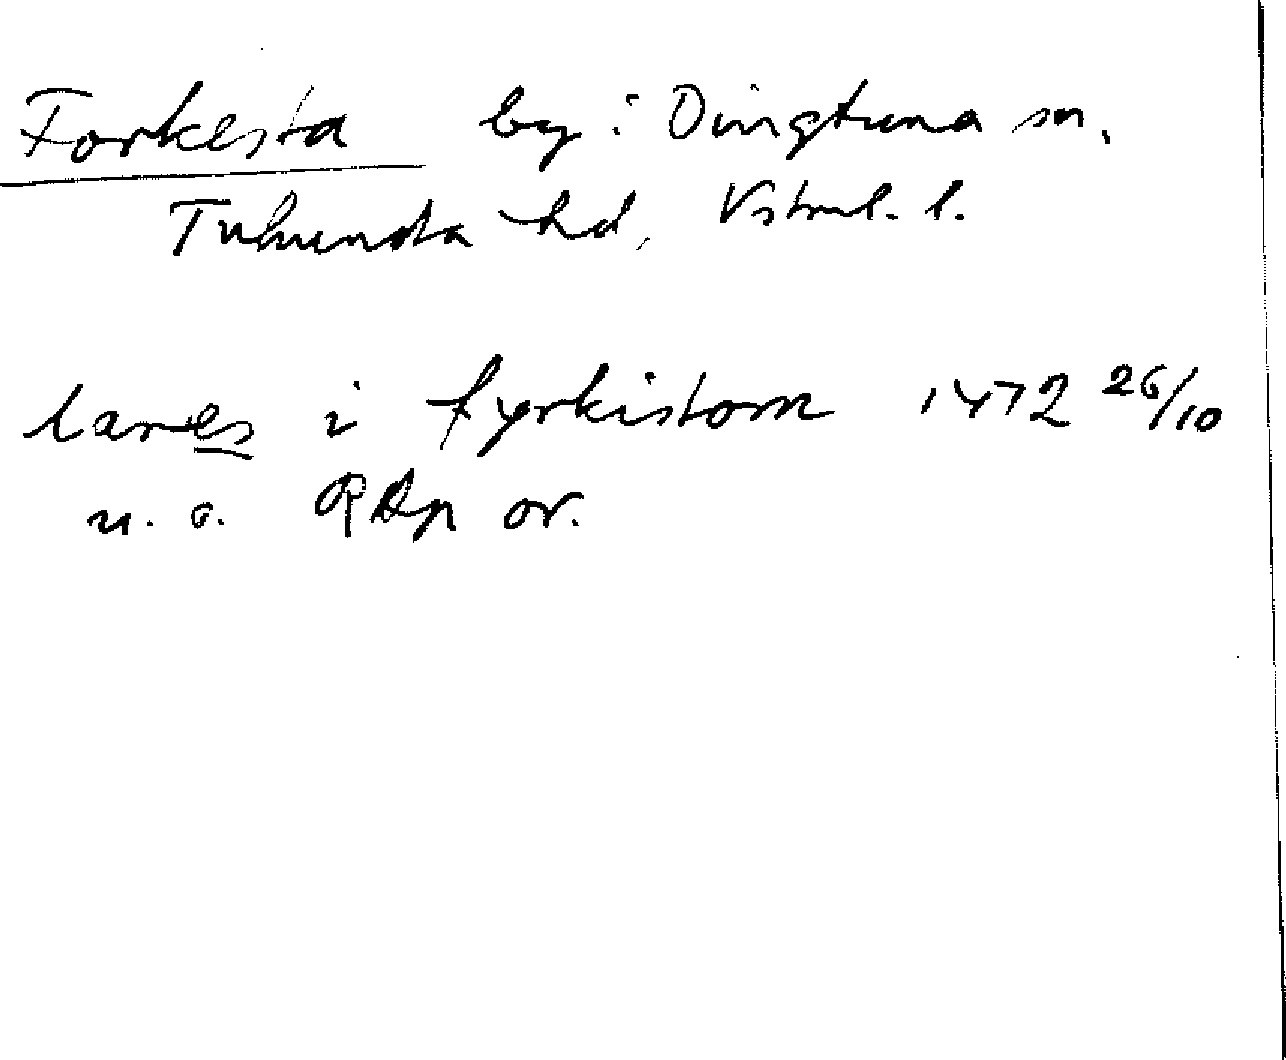 Forkesta by i Dingtuna sn,
Tuhundra hd, Vstml. l.
lares i fyrkistom 1472 26/10
u. o. RAp or.